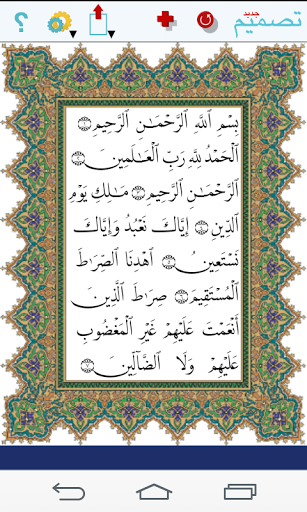 ؟
تصميم جديد
بِسْمِ ٱللَّهِ ٱلرَّحْمَـٰنِ ٱلرَّحِيمِ ۝١
ٱلْحَمْدُ لِلَّهِ رَبِّ ٱلْعَـٰلَمِينَ ۝٢
ٱلرَّحْمَـٰنِ ٱلرَّحِيمِ ۝٣ مَـٰلِكِ يَوْمِ
ٱلدِّينِ ۝٤ إِيَّاكَ نَعْبُدُ وَإِيَّاكَ
نَسْتَعِينُ ۝٥ ٱهْدِنَا ٱلصِّرَٰطَ
ٱلْمُسْتَقِيمَ ۝٦ صِرَٰطَ ٱلَّذِينَ
أَنْعَمْتَ عَلَيْهِمْ غَيْرِ ٱلْمَغْضُوبِ
عَلَيْهِمْ وَلَا ٱلضَّآلِّينَ ۝٧